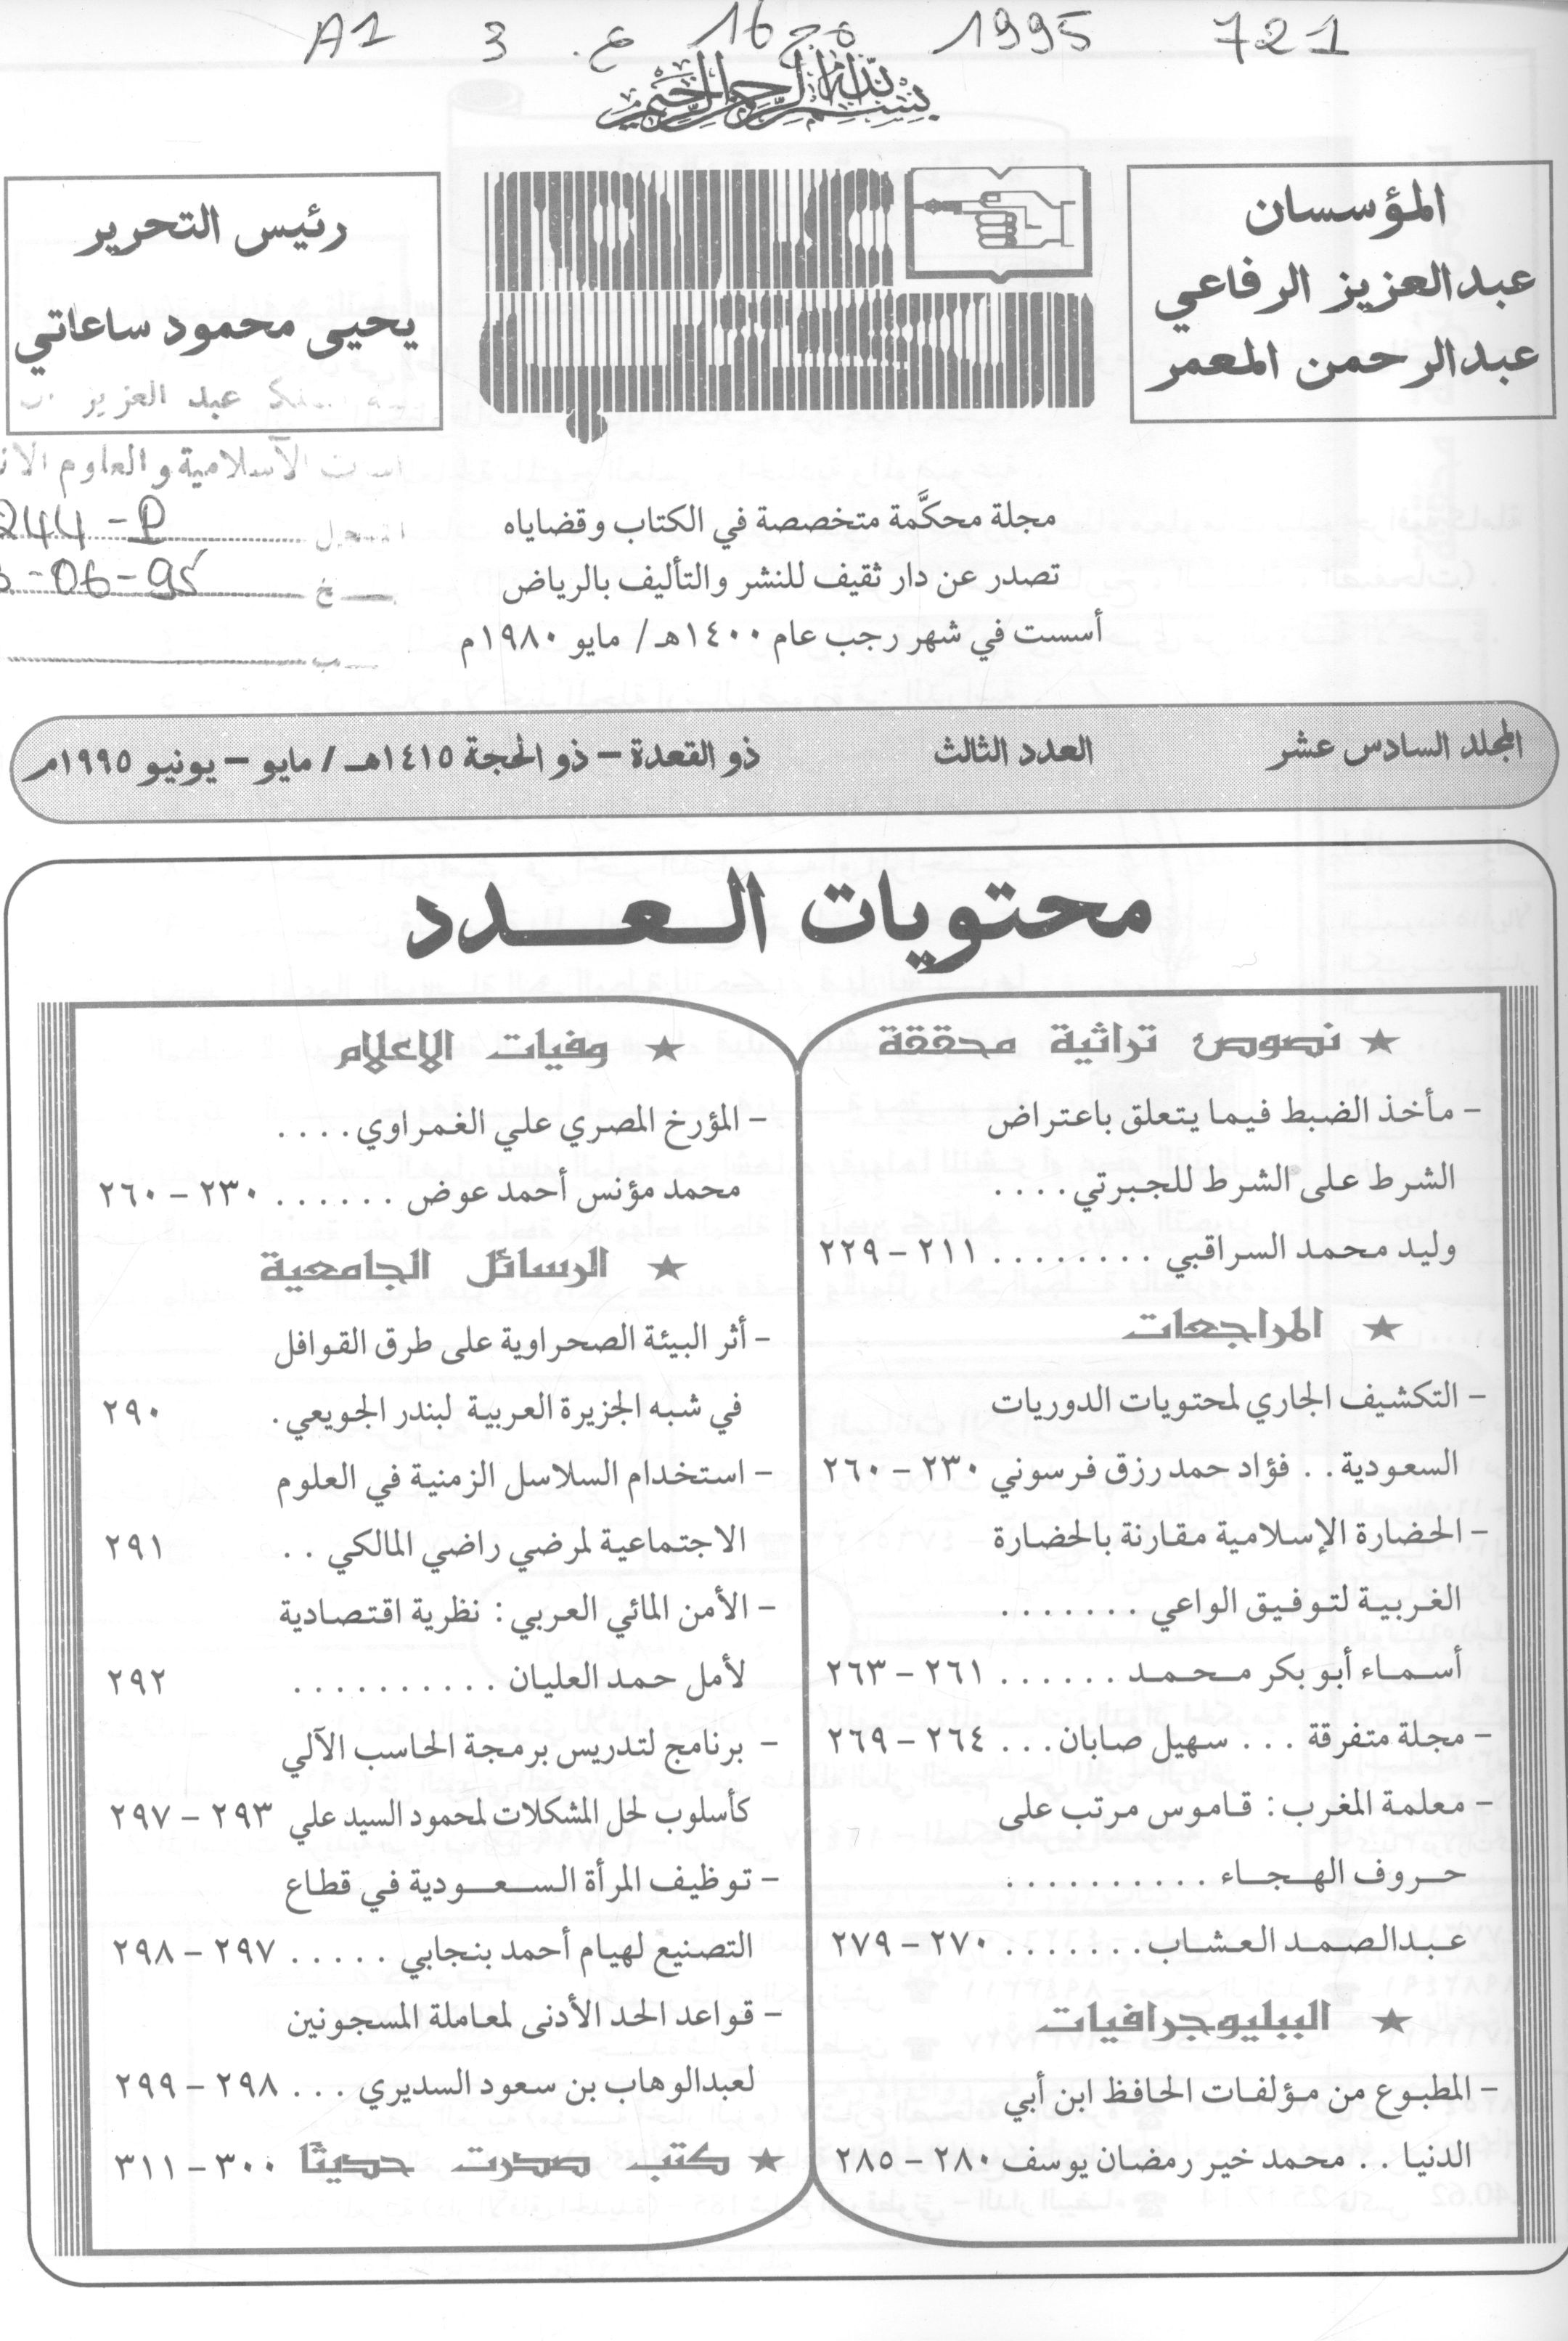 A1 3 ع. 16 مج 1995 721
بسم الله الرحمن الرحيم
المؤسسان
عبدالعزيز الرفاعي
عبدالرحمن المعمر
عالم الكتب
رئيس التحرير
يحيى محمود ساعاتي
عبد العزيز
الآسلامية والعلوم
244-P
-06-95
مجلة محكَّمة متخصصة في الكتاب وقضاياه
تصدر عن دار ثقيف للنشر والتأليف بالرياض
أسست في شهر رجب عام ١٤٠٠هـ/ مايو ١٩٨٠م
المجلد السادس عشر العدد الثالث ذو القعدة – ذو الحجة ١٤١٥هـ / مايو – يونيو ١٩٩٥م
محتويات العدد
★ نصوص تراثية محققة
– مأخذ الضبط فيما يتعلق باعتراض
الشرط على الشرط للجبرتي. . . .
وليد محمد السراقبي . . . . . . . . ٢١١ – ٢٢٩
★ المراجعات
– التكشيف الجاري لمحتويات الدوريات
السعودية. . فؤاد حمد رزق فرسوني ٢٣٠ – ٢٦٠
– الحضارة الإسلامية مقارنة بالحضارة
الغربية لتوفيق الواعي . . . . . . .
أسماء أبو بكر محمد . . . . . . ٢٦١ – ٢٦٣
– مجلة متفرقة . . . سهيل صابان. . . ٢٦٤ – ٢٦٩
– معلمة المغرب: قاموس مرتب على
حروف الهجاء . . . . . . . . . .
عبدالصمد العشاب. . . . . . . ٢٧٠ – ٢٧٩
★ الببليوجرافيات
– المطبوع من مؤلفات الحافظ ابن أبي
الدنيا . . محمد خير رمضان يوسف ٢٨٠ – ٢٨٥
★ وفيات الاعلام
– المؤرخ المصري علي الغمراوي. . . .
محمد مؤنس أحمد عوض . . . . . . ٢٣٠ – ٢٦٠
★ الرسائل الجامعية
– أثر البيئة الصحراوية على طرق القوافل
في شبه الجزيرة العربية لبندر الجويعي. ٢٩٠
– استخدام السلاسل الزمنية في العلوم
الاجتماعية لمرضي راضي المالكي . . ٢٩١
– الأمن المائي العربي: نظرية اقتصادية
لأمل حمد العليان . . . . . . . . . . ٢٩٢
– برنامج لتدريس برمجة الحاسب الآلي
كأسلوب لحل المشكلات لمحمود السيد علي ٢٩٣ – ٢٩٧
– توظيف المرأة السعودية في قطاع
التصنيع لهيام أحمد بنجابي . . . . . ٢٩٧ – ٢٩٨
– قواعد الحد الأدنى لمعاملة المسجونين
لعبدالوهاب بن سعود السديري . . . ٢٩٨ – ٢٩٩
★ كتب صدرت حديثا ٣٠٠ – ٣١١